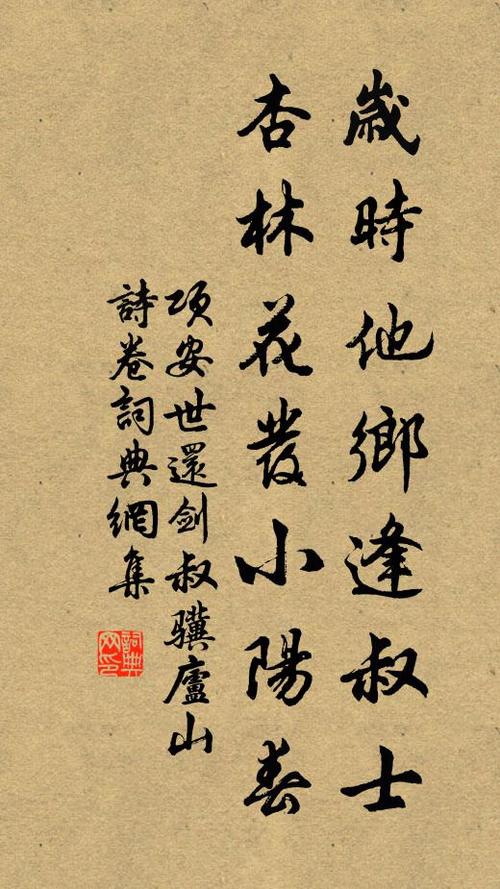 歲時他鄉逢叔士
杏林花發小陽春
項安世還劍叔驥廬山
詩卷詞典網集
詞典網印